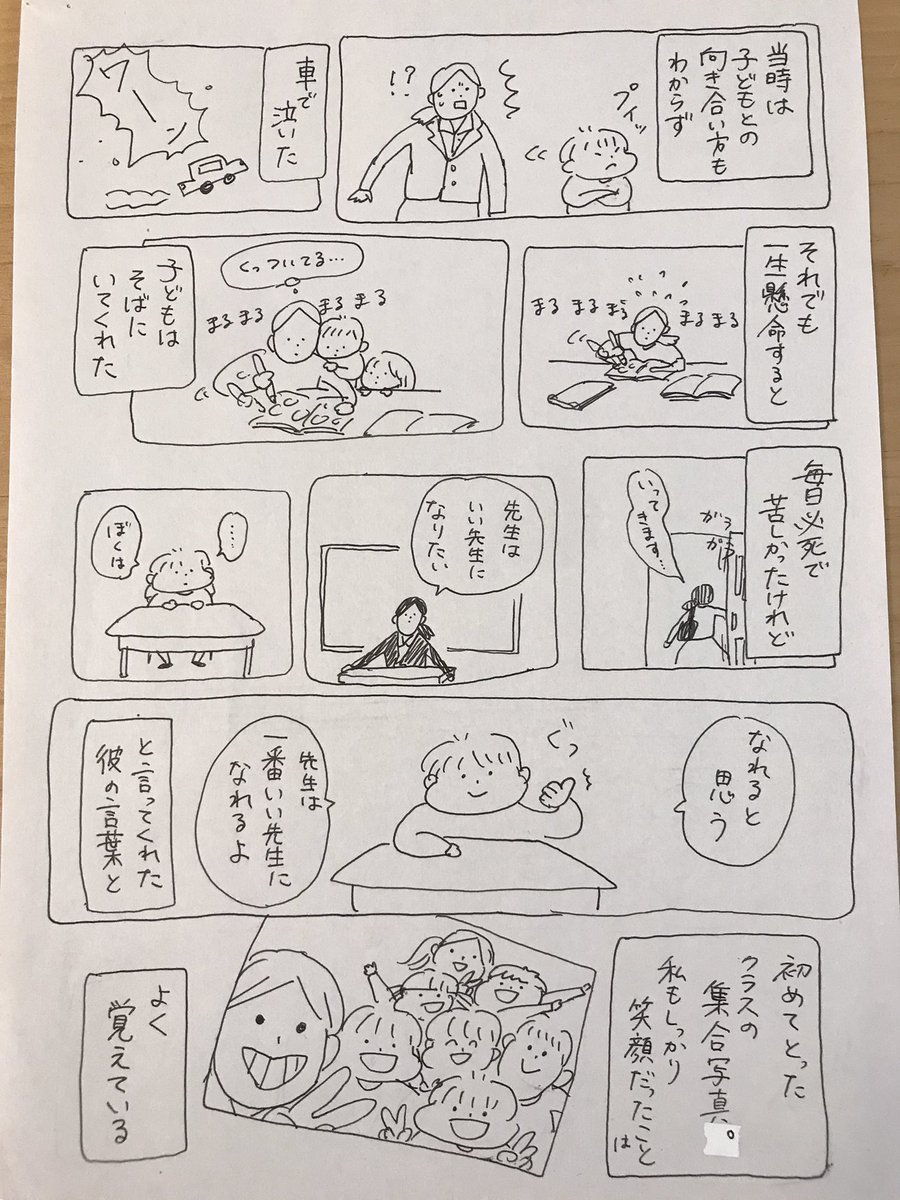 当時は
子どもとの
向き合い方も
わからず
プイッ
!?
車で
泣いた
ワーン
それでも
一生懸命すると
まる まる まる
まる まる
くっついてる…
まる まる
まる まる
子どもは
そばに
いてくれた
毎日必死で
苦しかったけれど
ガラ
ガラ
いって
きます…
先生は
いい先生に
なりたい
…
ぼくは
なれると
思う
ぐっ
先生は
一番いい先生に
なれるよ
と言ってくれた
彼の言葉と
初めてとった
クラスの
集合写真。
私もしっかり
笑顔だったこと
は
よく
覚えている